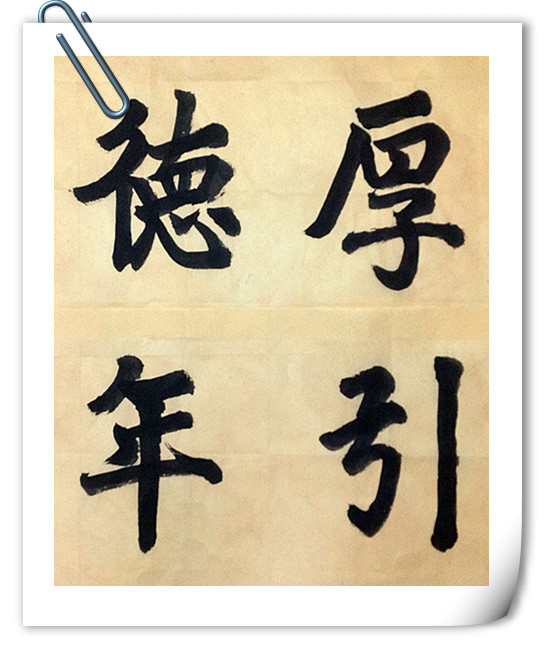 厚德
引年